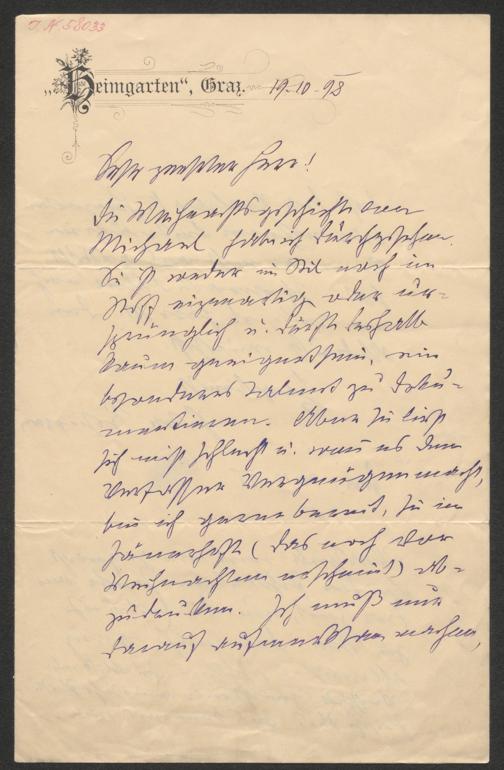 I.N. 58033
„Heimgarten“, Graz. 19.10.98
Sehr geehrter Herr!
Die Weihnachtsgeschichte von
Michael habe ich durchgesehen.
Sie ist weder im Stil noch im
Stoff eigenartig oder ur-
sprünglich u. dürfte deshalb
kaum geeignet sein, ein
besonderes Talent zu doku-
mentieren. Aber sie liest
sich nicht schlecht u. wenn es dem
Verfasser Vergnügen macht,
bin ich gerne bereit, sie im
Jännerheft (das noch vor
Weihnachten erscheint) ab-
zudrucken. Ich muß nur
darauf aufmerksam machen,